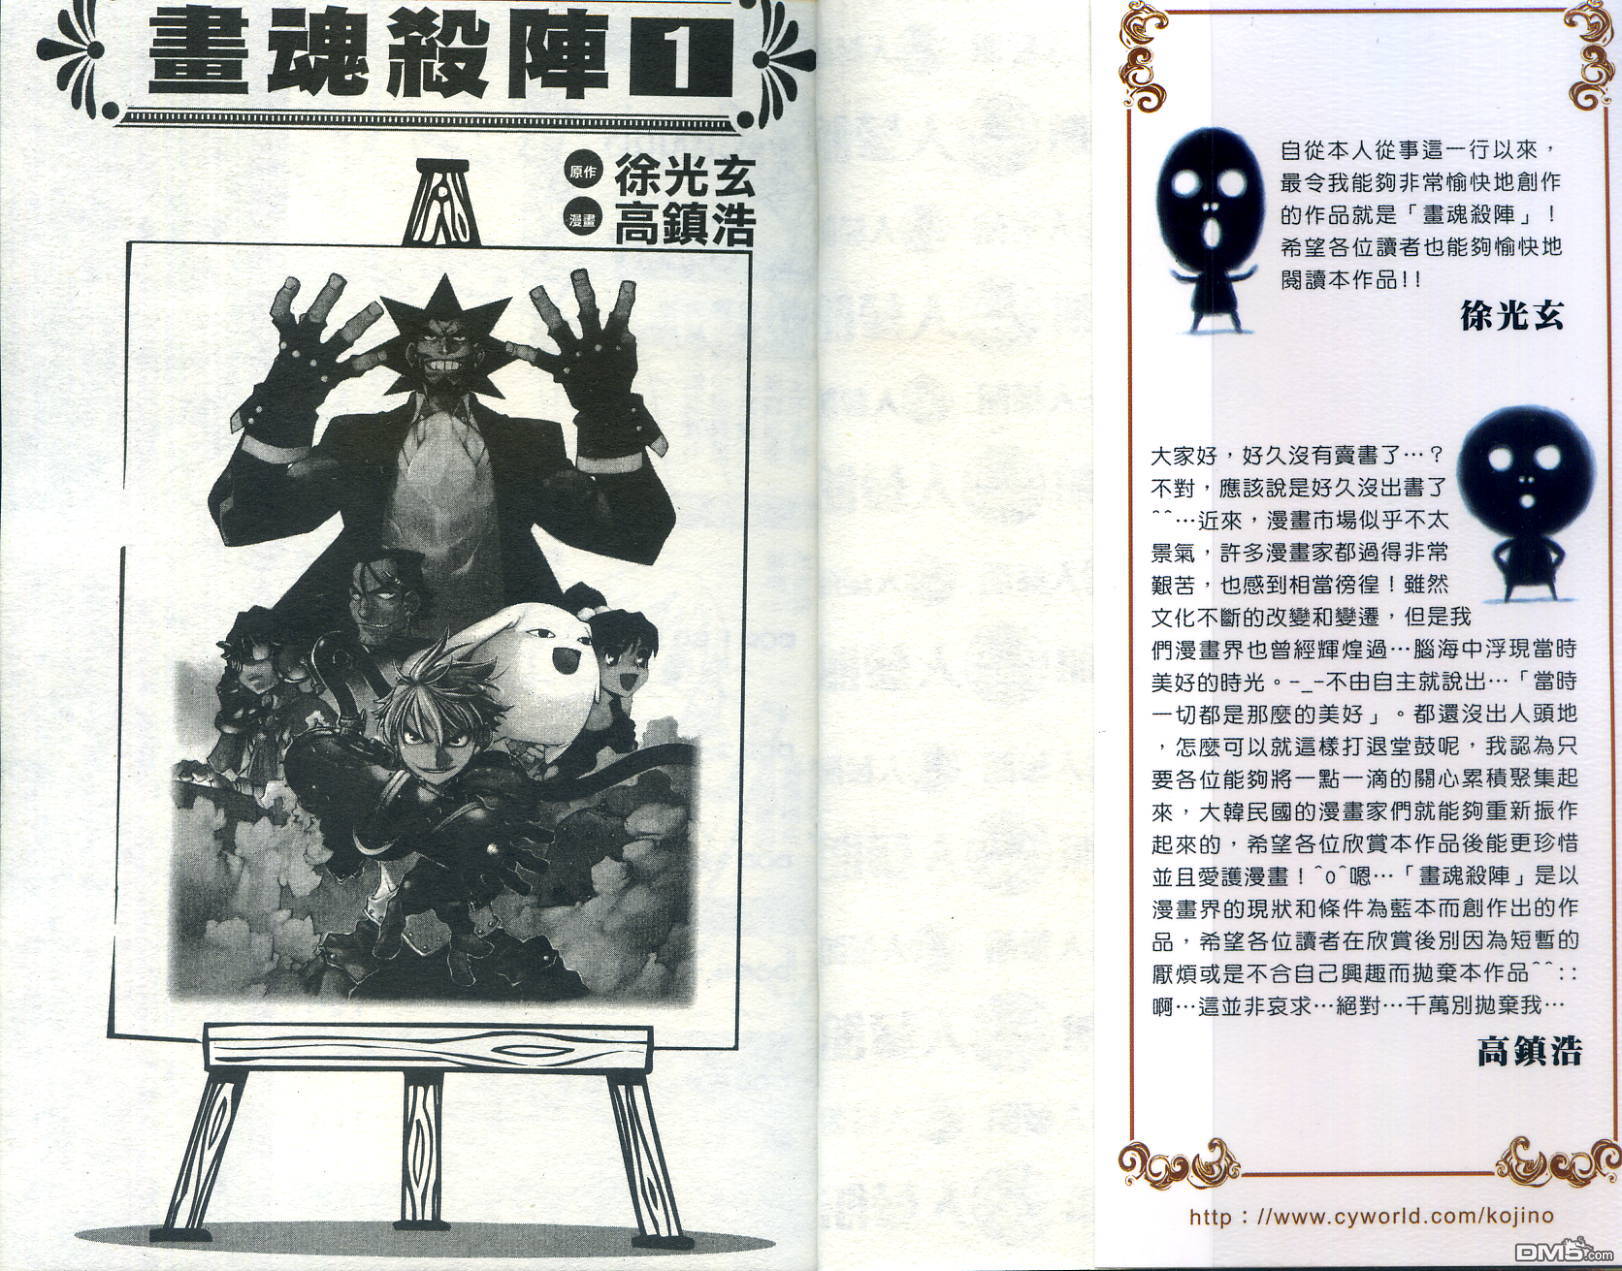 畫魂殺陣1
原作 徐光玄
漫畫 高鎮浩
自從本人從事這一行以來，
最令我能夠非常愉快地創作
的作品就是「畫魂殺陣」！
希望各位讀者也能夠愉快地
閱讀本作品!!
徐光玄
大家好，好久沒有賣書了…？
不對，應該說是好久沒出書了
^^…近來，漫畫市場似乎不太
景氣，許多漫畫家都過得非常
艱苦，也感到相當徬徨！雖然
文化不斷的改變和變遷，但是我
們漫畫界也曾經輝煌過…腦海中浮現當時
美好的時光。-_-不由自主就說出…「當時
一切都是那麼的美好」。都還沒出人頭地
，怎麼可以就這樣打退堂鼓呢，我認為只
要各位能夠將一點一滴的關心累積聚集起
來，大韓民國的漫畫家們就能夠重新振作
起來的，希望各位欣賞本作品後能更珍惜
並且愛護漫畫！^o^嗯…「畫魂殺陣」是以
漫畫界的現狀和條件為藍本而創作出的作
品，希望各位讀者在欣賞後別因為短暫的
厭煩或是不合自己興趣而拋棄本作品^^::
啊…這並非哀求…絕對…千萬別拋棄我…
高鎮浩
http：//www.cyworld.com/kojino
DM5.com